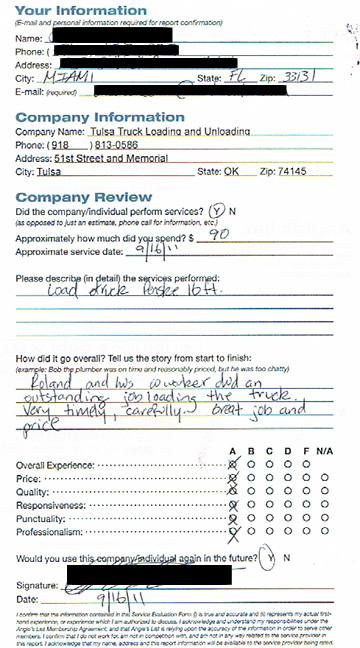 Your Information
(E-mail and personal information required for report confirmation)
Name:
Phone: (
Address:
City: MIAMI State: FL Zip: 33131
E-mail: (required)
Company Information
Company Name: Tulsa Truck Loading and Unloading
Phone: (918 ) 813-0586
Address: 51st Street and Memorial
City: Tulsa State: OK Zip: 74145
Company Review
Did the company/individual perform services? Y N
(as opposed to just an estimate, phone call for information, etc.)
Approximately how much did you spend? $ 90
Approximate service date: 9/16/11
Please describe (in detail) the services performed:
Load truck Penske 16 ft.
How did it go overall? Tell us the story from start to finish:
(example: Bob the plumber was on time and reasonably priced, but he was too chatty)
Roland and his coworker did an
outstanding job loading the truck.
Very timely, carefully. Great job and
price
A B C D F N/A
Overall Experience:
Price:
Quality:
Responsiveness:
Punctuality:
Professionalism:
Would you use this company/individual again in the future? Y N
Signature:
Date: 9/16/11
I confirm that the information contained in this Service Evaluation Form (i) is true and accurate and (ii) represents my actual first-
hand experience, or experience which I am authorized to discuss. I acknowledge and understand my responsibilities under the
Angie's List Membership Agreement, and that Angie's List is relying upon the accuracy of the information in order to serve other
members. I confirm that I do not work for, am not in competition with, and am not in any way related to the service provider in
this report. I acknowledge that my name, address and this report information will be available to the service provider being rated.